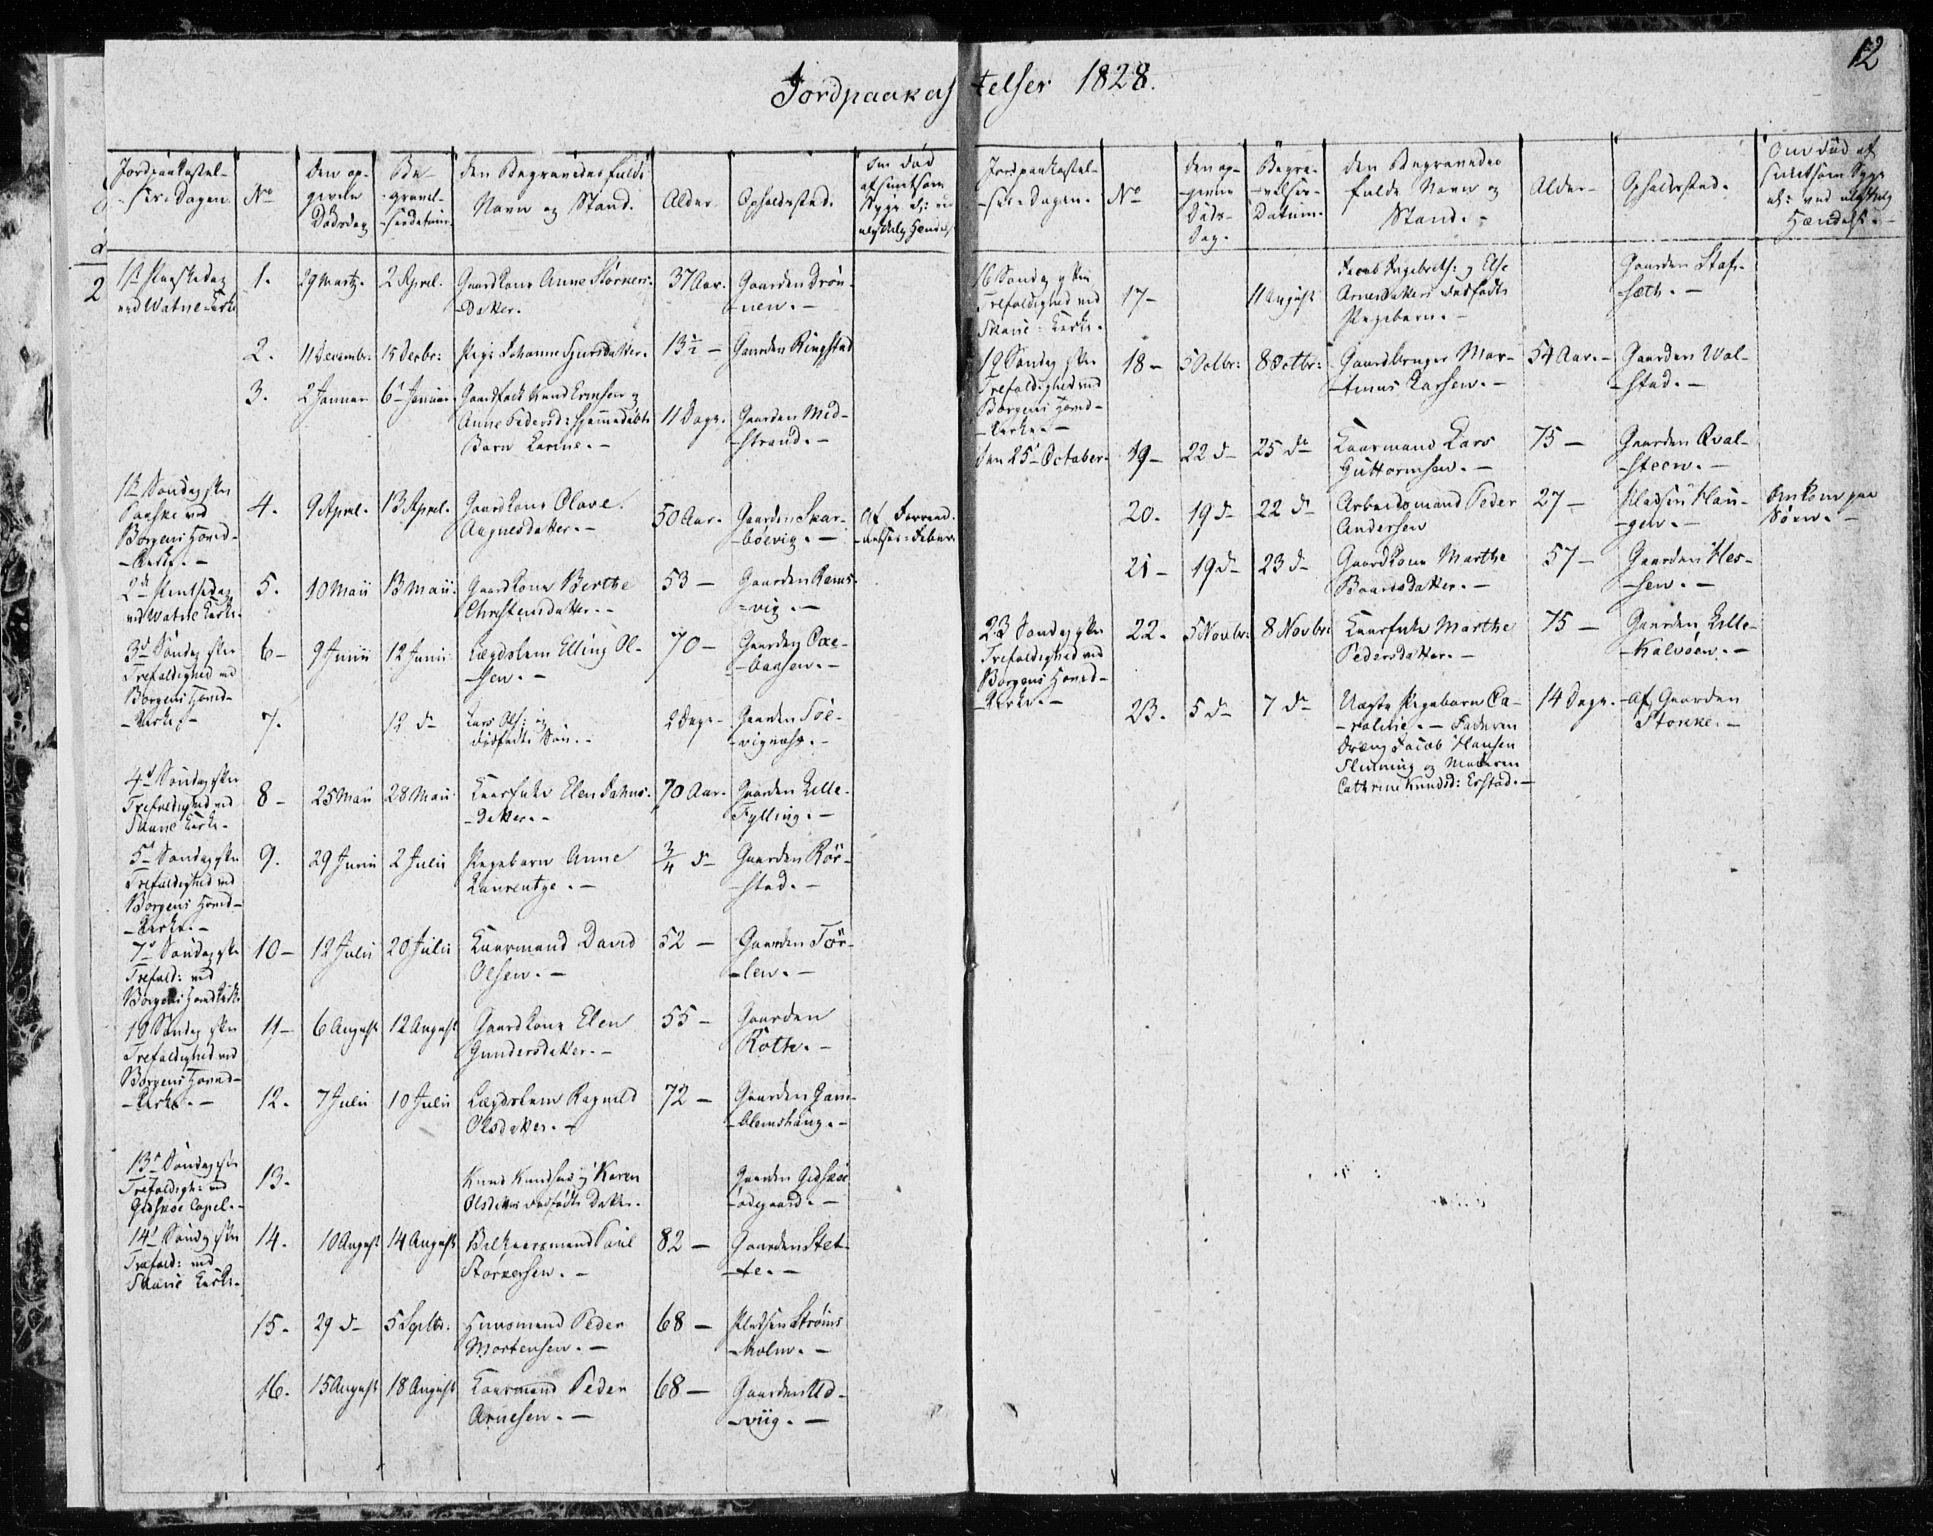 Jordpaakastelser 1828.
12
Jordpaakastel-
-ses-Dagen
No
Den op-
givne
Dødsdag
Be-
gravel-
-sesdatum
Den Begravedes fulde
Navn og Stand.
Alder.
Opholdsted.
Om død
af smitsom
Syge el: ved
ulykkelig Hændelse
1ste Paaskedag
ved Watne Kirke
1.
29 Martz.
2 April.
Gaardkone Anne Størkers-
-Datter.
37 Aar.
Gaarden Brøu-
-nen. -
2.
11 Decembr:
15 Decbr:
Pige Johanne Sjursdatter.
13½ -
Gaarden Ringstad
3.
2 Januar
6 Januar
Gaardfolk Knud Ermsen og
Anne Pedersd: hjemmedøbte
Barn Karine. -
11 Dage.
Gaarden Mid-
-strand. -
1te Søndag efter
Paaske ved
Borgens Hoved-
-Kirke. -
4.
9 April.
13 April.
Gaardkone Olave
Aagnesdatter. -
50 Aar.
Gaarden Skar-
-bøevig. -
2den Pintsedag
ved Watne Kirke.
5.
10 Maii
13 Maii.
Gaardkone Berthe
Christensdatter. -
53 -
Gaarden Rems-
-vig. -
3d Søndag efter
Trefoldighed ved
Borgens Hoved-
-Kirke. -
6 -
9 Junii
12 Junii
Lægdslem Elling Ol-
-sen. -
70 -
Gaarden Oxe-
-baasen. -
7.
12 d-
Lars Ols: og
dødfødte Søn. -
2 Dage -
Gaarden Søe-
-vignæss. -
4d Søndag efter
Trefoldighed ved
Skoue Kirke.
8 -
25 Maii
28 Maii
Kaarfolk Elen Jahns-
-datter. -
70 Aar.
Gaarden Lille-
Fylling. -
5d Søndag efter
Trefoldighed ved
Borgens Hoved-
-Kirke. -
9.
29 Junii
2 Julii
Pigebarn Anne
Laurentze. -
¾ d-
Gaarden Rør-
-stad. -
7d Søndag efter
Trefold: ved
Borgens Hovedkirke
10 -
12 Julii
20 Julii
Kaarmand David
Olsen. -
52 -
Gaarden Tør-
-len. -
10 Søndag efter
Trefoldighed ved
Borgens Hoved-
-Kirke. -
11 -
6 August
12 August
Gaardkone Elen
Gundersdatter. -
55 -
Gaarden
Roth. -
12.
7 Julii
10 Julii
Lægdslem Ragnild
Olsdatter. -
72 -
Gaarden Gam-
-blemshaug. -
13d Søndag efter
Trefoldigh: ved
Gidskøe Capel. -
13.
Knud Knudsens og Karen
Olsdatters dødfødte Datter.
Gaarden Gidskøe
ødegaard. -
14d Søndag efter
Trefold: ved
Skoue Kirke.
14.
10 August
14 August
Paul
Størkersen. -
82 -
Gaarden Stet-
-te. -
15.
29 d-
5 Septbr.
Huusmand Peder
Mortensen. -
68 -
Pladsen Strøms
-holm. -
16.
15 August
18 August
Kaarmand Peder
Arnesen. -
68 -
Gaarden Ud-
-viig. -
Jordpaakastel-
-ses-Dagen.
No
Den op-
-givne
Døds-
Dag.
Begra-
-velses-
Datum.
Den Begravedes
fulde Navn og
Stand. -
Alder -
Opholdsted.
Om død af
smitsom Syge
el: ved ulykkelig
Hændelse. -
16 Søndag efter
Trefoldighed ved
Skoue: Kirke.
17 -
11 August
Jacob Ingebrigts: og Else
Arnesdatters dødfødte
Pigebarn. -
Gaarden Stafs-
-sæth. -
19 Søndag efter
Trefoldighed ved
Borgens Hoved-
-Kirke. -
18 -
5 Octbr:
8 Octbr:
Gaardbruger Mar-
-tinus Larsen. -
54 Aar. -
Gaarden Wal-
-stad. -
Den 25 October.
19 -
22 d-
25 d-
Kaarmand Lars
Guttormsen. -
75 -
Gaarden Qval-
-steen. -
20.
19 d-
22 d-
Arbeidsmand Peder
Andersen
27 -
Pladsen Hau-
-gen. -
Omkom paa
Søen. -
21 -
19 d-
23 d-
Gaardkone Marthe
Baardsdatter. -
57 -
Gaarden Hes-
-sen. -
23 Søndag efter
Trefoldighed ved
Borgens Hoved-
-Kirke. -
22.
5 Novbr:
8 Novbr:
Marthe
Pedersdatter. -
75 -
Gaarden Lille-
-Kalvøen. -
23.
5 d-
7 d-
Uægte Pigebarn Ca-
-roline. - Faderen
Dreng Jacob Hansen
Flening og Moderen
Cathrine Knudsd: Erstad. -
14 Dage.
Af Gaarden
Stokke. -